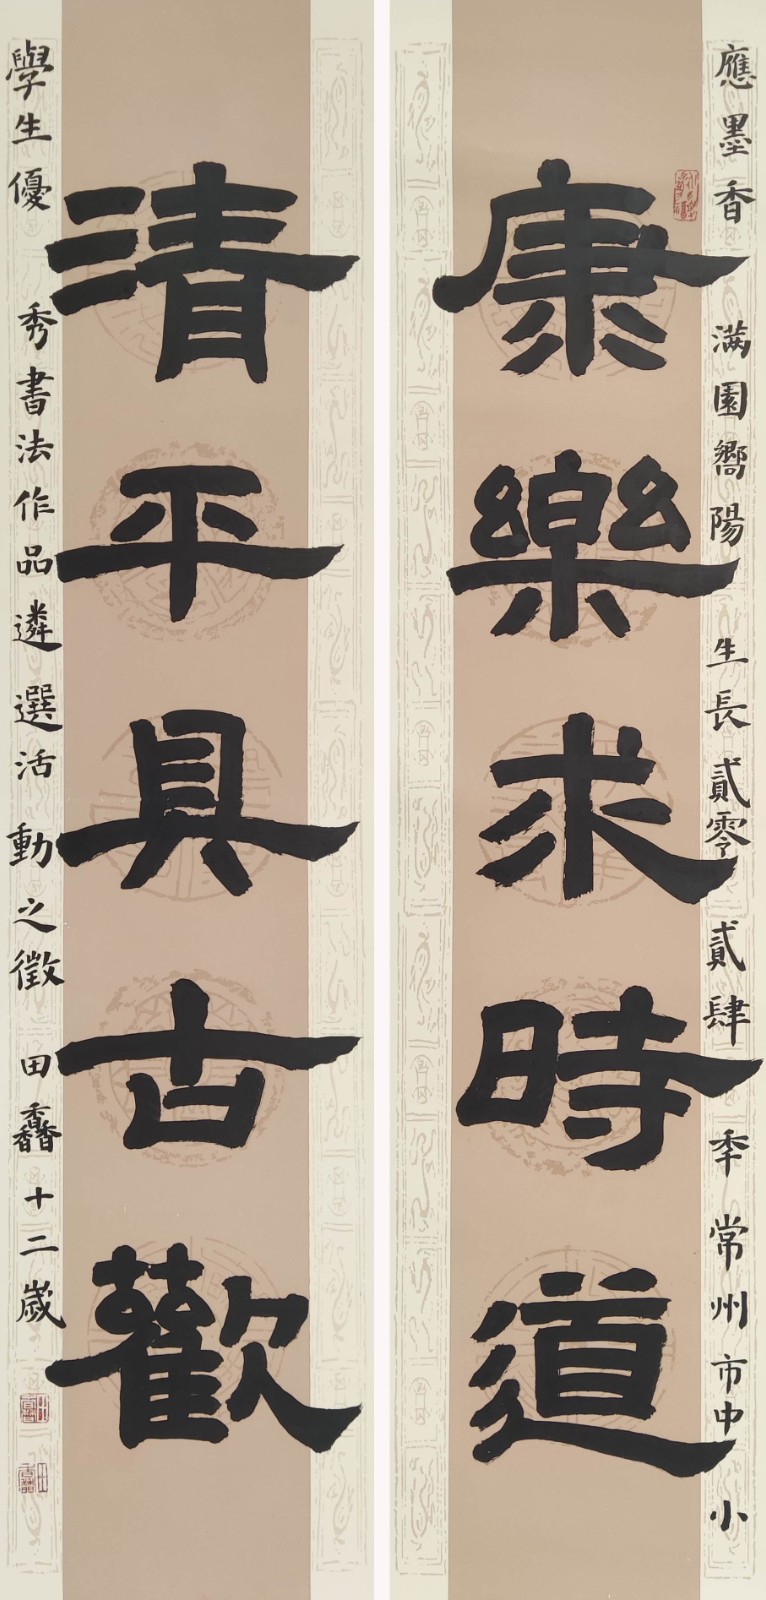 應墨香 满園嚮陽 生長貳零貳肆秊常州市中小
康樂求時道
清平具古歡
學生優秀書法作品遴選活動之徵 田馫十二歲